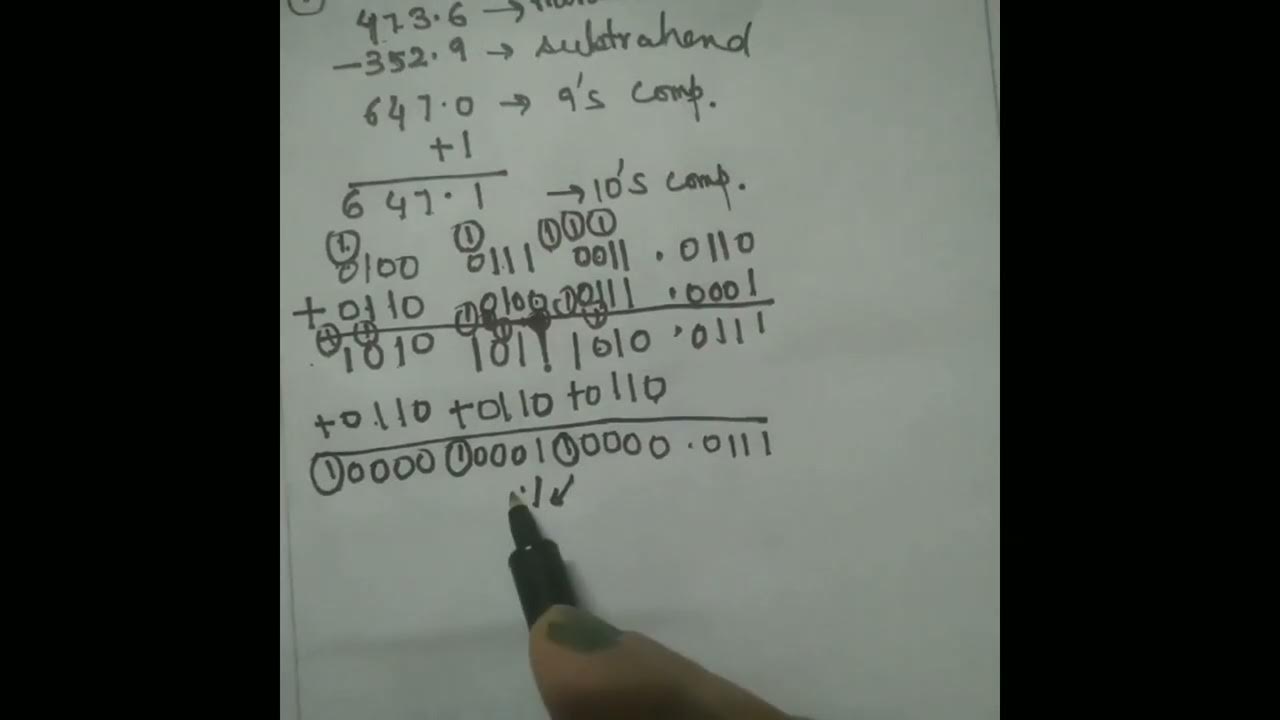 473.6 →
-352.9 → subtrahend
647.0 → 9's comp.
+1
647.1 → 10's comp.
1 1 1 1 1
0100 0111 0011 .0110
+0110 0100 0111 .0001
1010 1011 1010 .0111
+0110 +0110 +0110
1 0000 1 0001 1 0000 .0111
1 ↙